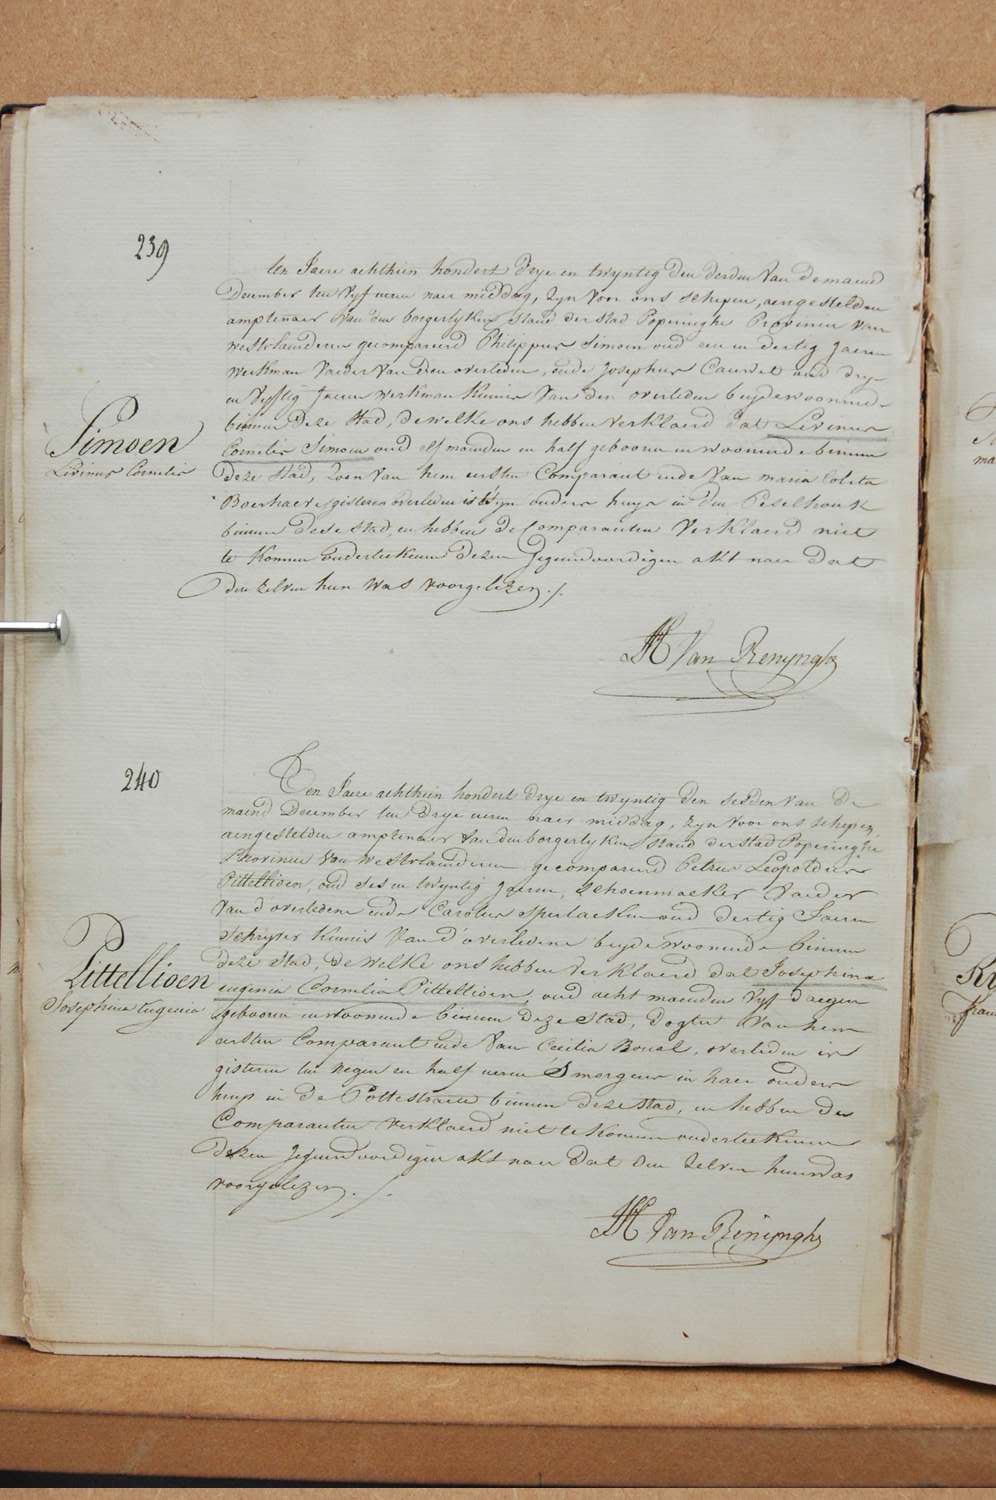 239
ten Jaere achthien hondert Drye en twyntig Den derden Van De maend
December ten Vyf uren naer middag, Zyn Voor ons schepen, aengestelden
amptenaer Van den borgerlyken Stand der Stad Poperinghe Provincie Van
Westvlaenderen gecompareerd Philippus Simoen oud een en dertig Jaeren
Werkman Vaeder Van Den overleden, ende Josephus Cauwet oud Drye
en Vyftig Jaeren Werkman Kinnis Van den overleden beyde woonende
binnen Deze Stad, de welke ons hebben Verklaerd Dat Livinus
Simoen
Livinus Cornelis
Cornelis Simoen oud elf maenden en half geboren en woonende binnen
Deze Stad, Zoen Van hem eersten Comparant ende Van maria Coleta
Boerhaeve gisteren overleden is Zyn ouders huys in den Peselhoeck
binnen Deese Stad, en hebben De Comparanten Verklaerd niet
te Konnen onderteekenen Dezen Jegenwoordigen akt naer Dat
Den Zelven hun Was voorgelezen ./.
Van Renynghe
240
Ten Jaere achthien hondert Drye en twyntig Den sesden Van De
maend December ten Drye uren naer middag, Zyn Voor ons schepen,
aengestelden amptenaer Van den borgerlyken Stand der Stad Poperinghe
Provincie Van Westvlaenderen gecompareerd Petrus Leopoldus
Pittellioen, oud ses en twyntig Jaeren, Schoenmaeker Vaeder
Van d'overledene ende Carolus Sperlaeken oud dertig Jaeren
Schryver Kinnis Van d'overledene beyde woonende binnen
deze Stad, De Welke ons hebben Verklaerd dat Josephina
Pittellioen
Josephina Eugenia
eugenia Cornelia Pittellioen, oud acht maenden Vyf Daegen
geboren en woonende binnen Deze Stad, Dogter Van hem
eersten Comparant ende Van Cecilia Boual, overleden is
gisteren ten negen en half uren S'morgens in haer ouders
huys in De Pottestraete binnen deze Stad, en hebben De
Comparanten Verklaerd niet te Konnen onderteekenen
Dezen Jegenwoordigen akt naer Dat Den Zelven hun was
voorgelezen ./.
Van Renynghe